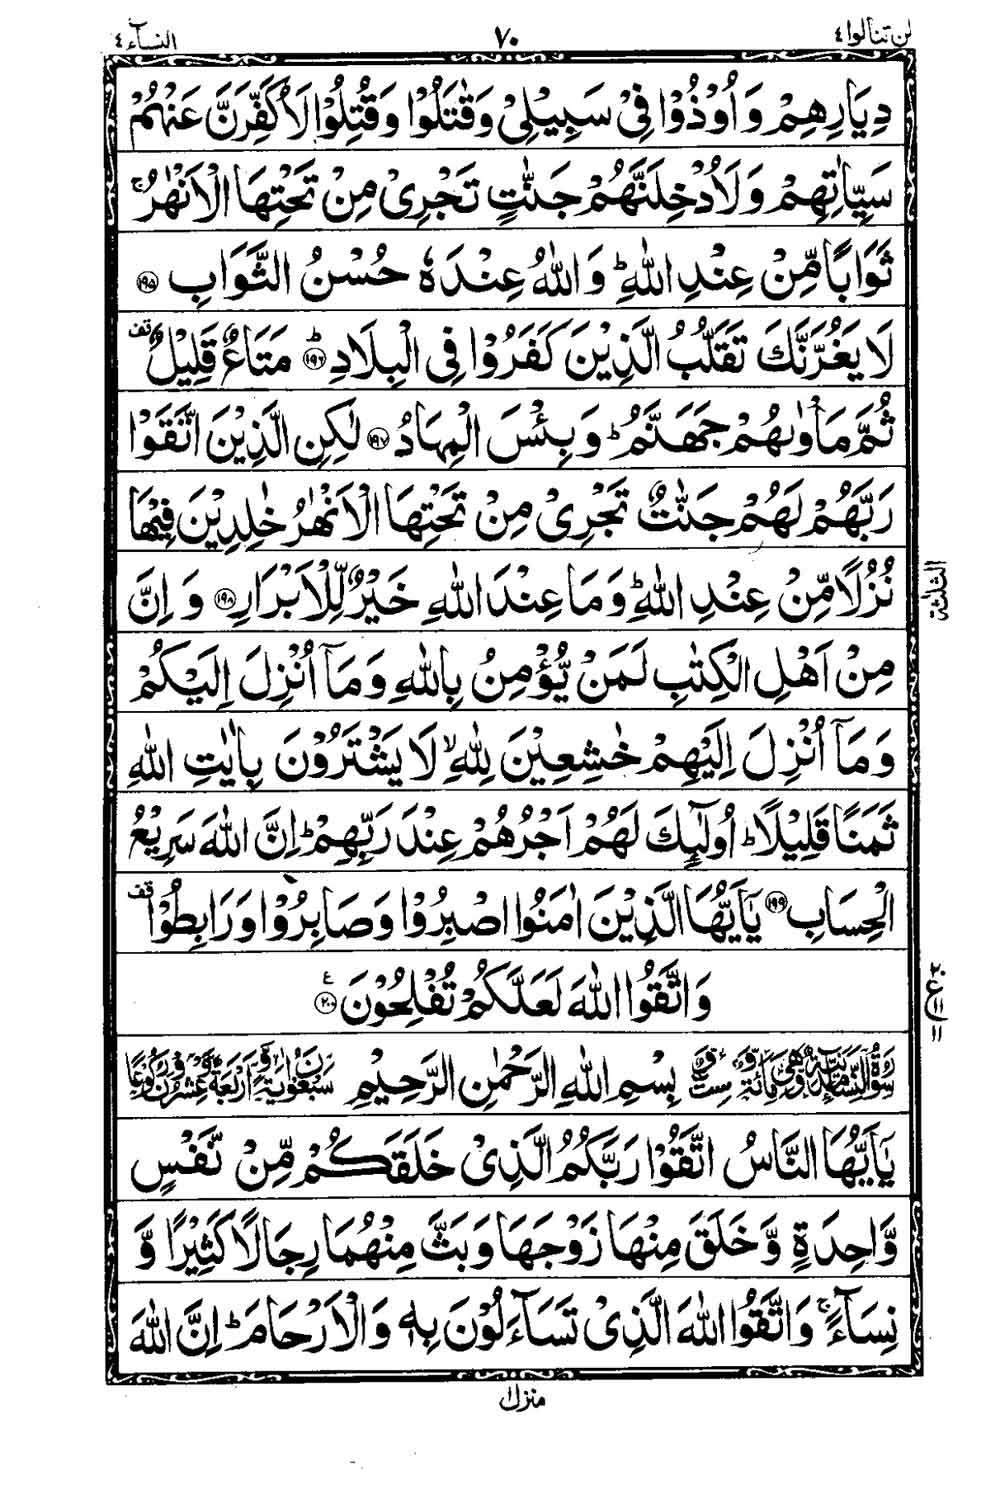 لن تنالوا ٤ ٧٠ النسآء ٤
دِيَارِهِمْ وَاُوْذُوْا فِىْ سَبِيْلِىْ وَقٰتَلُوْا وَقُتِلُوْا لَاُكَفِّرَنَّ عَنْهُمْ
سَيِّاٰتِهِمْ وَلَاُدْخِلَنَّهُمْ جَنّٰتٍ تَجْرِىْ مِنْ تَحْتِهَا الْاَنْهٰرُ ۚ
ثَوَابًا مِّنْ عِنْدِ اللّٰهِ ؕ وَاللّٰهُ عِنْدَهٗ حُسْنُ الثَّوَابِ ۝۱۹۵
لَا يَغُرَّنَّكَ تَقَلُّبُ الَّذِيْنَ كَفَرُوْا فِى الْبِلَادِ ؕ ۝۱۹۶ مَتَاعٌ قَلِيْلٌ ۟قف
ثُمَّ مَاْوٰىهُمْ جَهَنَّمُ ؕ وَبِئْسَ الْمِهَادُ ۝۱۹۷ لٰكِنِ الَّذِيْنَ اتَّقَوْا
رَبَّهُمْ لَهُمْ جَنّٰتٌ تَجْرِىْ مِنْ تَحْتِهَا الْاَنْهٰرُ خٰلِدِيْنَ فِيْهَا
نُزُلًا مِّنْ عِنْدِ اللّٰهِ ؕ وَمَا عِنْدَ اللّٰهِ خَيْرٌ لِّلْاَبْرَارِ ۝۱۹۸ وَاِنَّ
الثلثة
مِنْ اَهْلِ الْكِتٰبِ لَمَنْ يُّؤْمِنُ بِاللّٰهِ وَمَاۤ اُنْزِلَ اِلَيْكُمْ
وَمَاۤ اُنْزِلَ اِلَيْهِمْ خٰشِعِيْنَ لِلّٰهِ ۙ لَا يَشْتَرُوْنَ بِاٰيٰتِ اللّٰهِ
ثَمَنًا قَلِيْلًا ؕ اُولٰٓئِكَ لَهُمْ اَجْرُهُمْ عِنْدَ رَبِّهِمْ ؕ اِنَّ اللّٰهَ سَرِيْعُ
الْحِسَابِ ۝۱۹۹ يٰۤاَيُّهَا الَّذِيْنَ اٰمَنُوا اصْبِرُوْا وَصَابِرُوْا وَرَابِطُوْا ۟قف
وَاتَّقُوا اللّٰهَ لَعَلَّكُمْ تُفْلِحُوْنَ ۝۲۰۰ ع
۲۰ ع ۱۱ ۱۱
سُوْرَةُ النِّسَآءِ مَدَنِيَّةٌ وَّهِىَ مِائَةٌ وَّسِتٌّ وَّ بِسْمِ اللّٰهِ الرَّحْمٰنِ الرَّحِيْمِ سَبْعُوْنَ اٰيَةً وَّاَرْبَعَةٌ وَّعِشْرُوْنَ رُكُوْعًا
يٰۤاَيُّهَا النَّاسُ اتَّقُوْا رَبَّكُمُ الَّذِىْ خَلَقَكُمْ مِّنْ نَّفْسٍ
وَّاحِدَةٍ وَّخَلَقَ مِنْهَا زَوْجَهَا وَبَثَّ مِنْهُمَا رِجَالًا كَثِيْرًا وَّ
نِسَآءً ۚ وَاتَّقُوا اللّٰهَ الَّذِىْ تَسَآءَلُوْنَ بِهٖ وَالْاَرْحَامَ ؕ اِنَّ اللّٰهَ
منزل ١